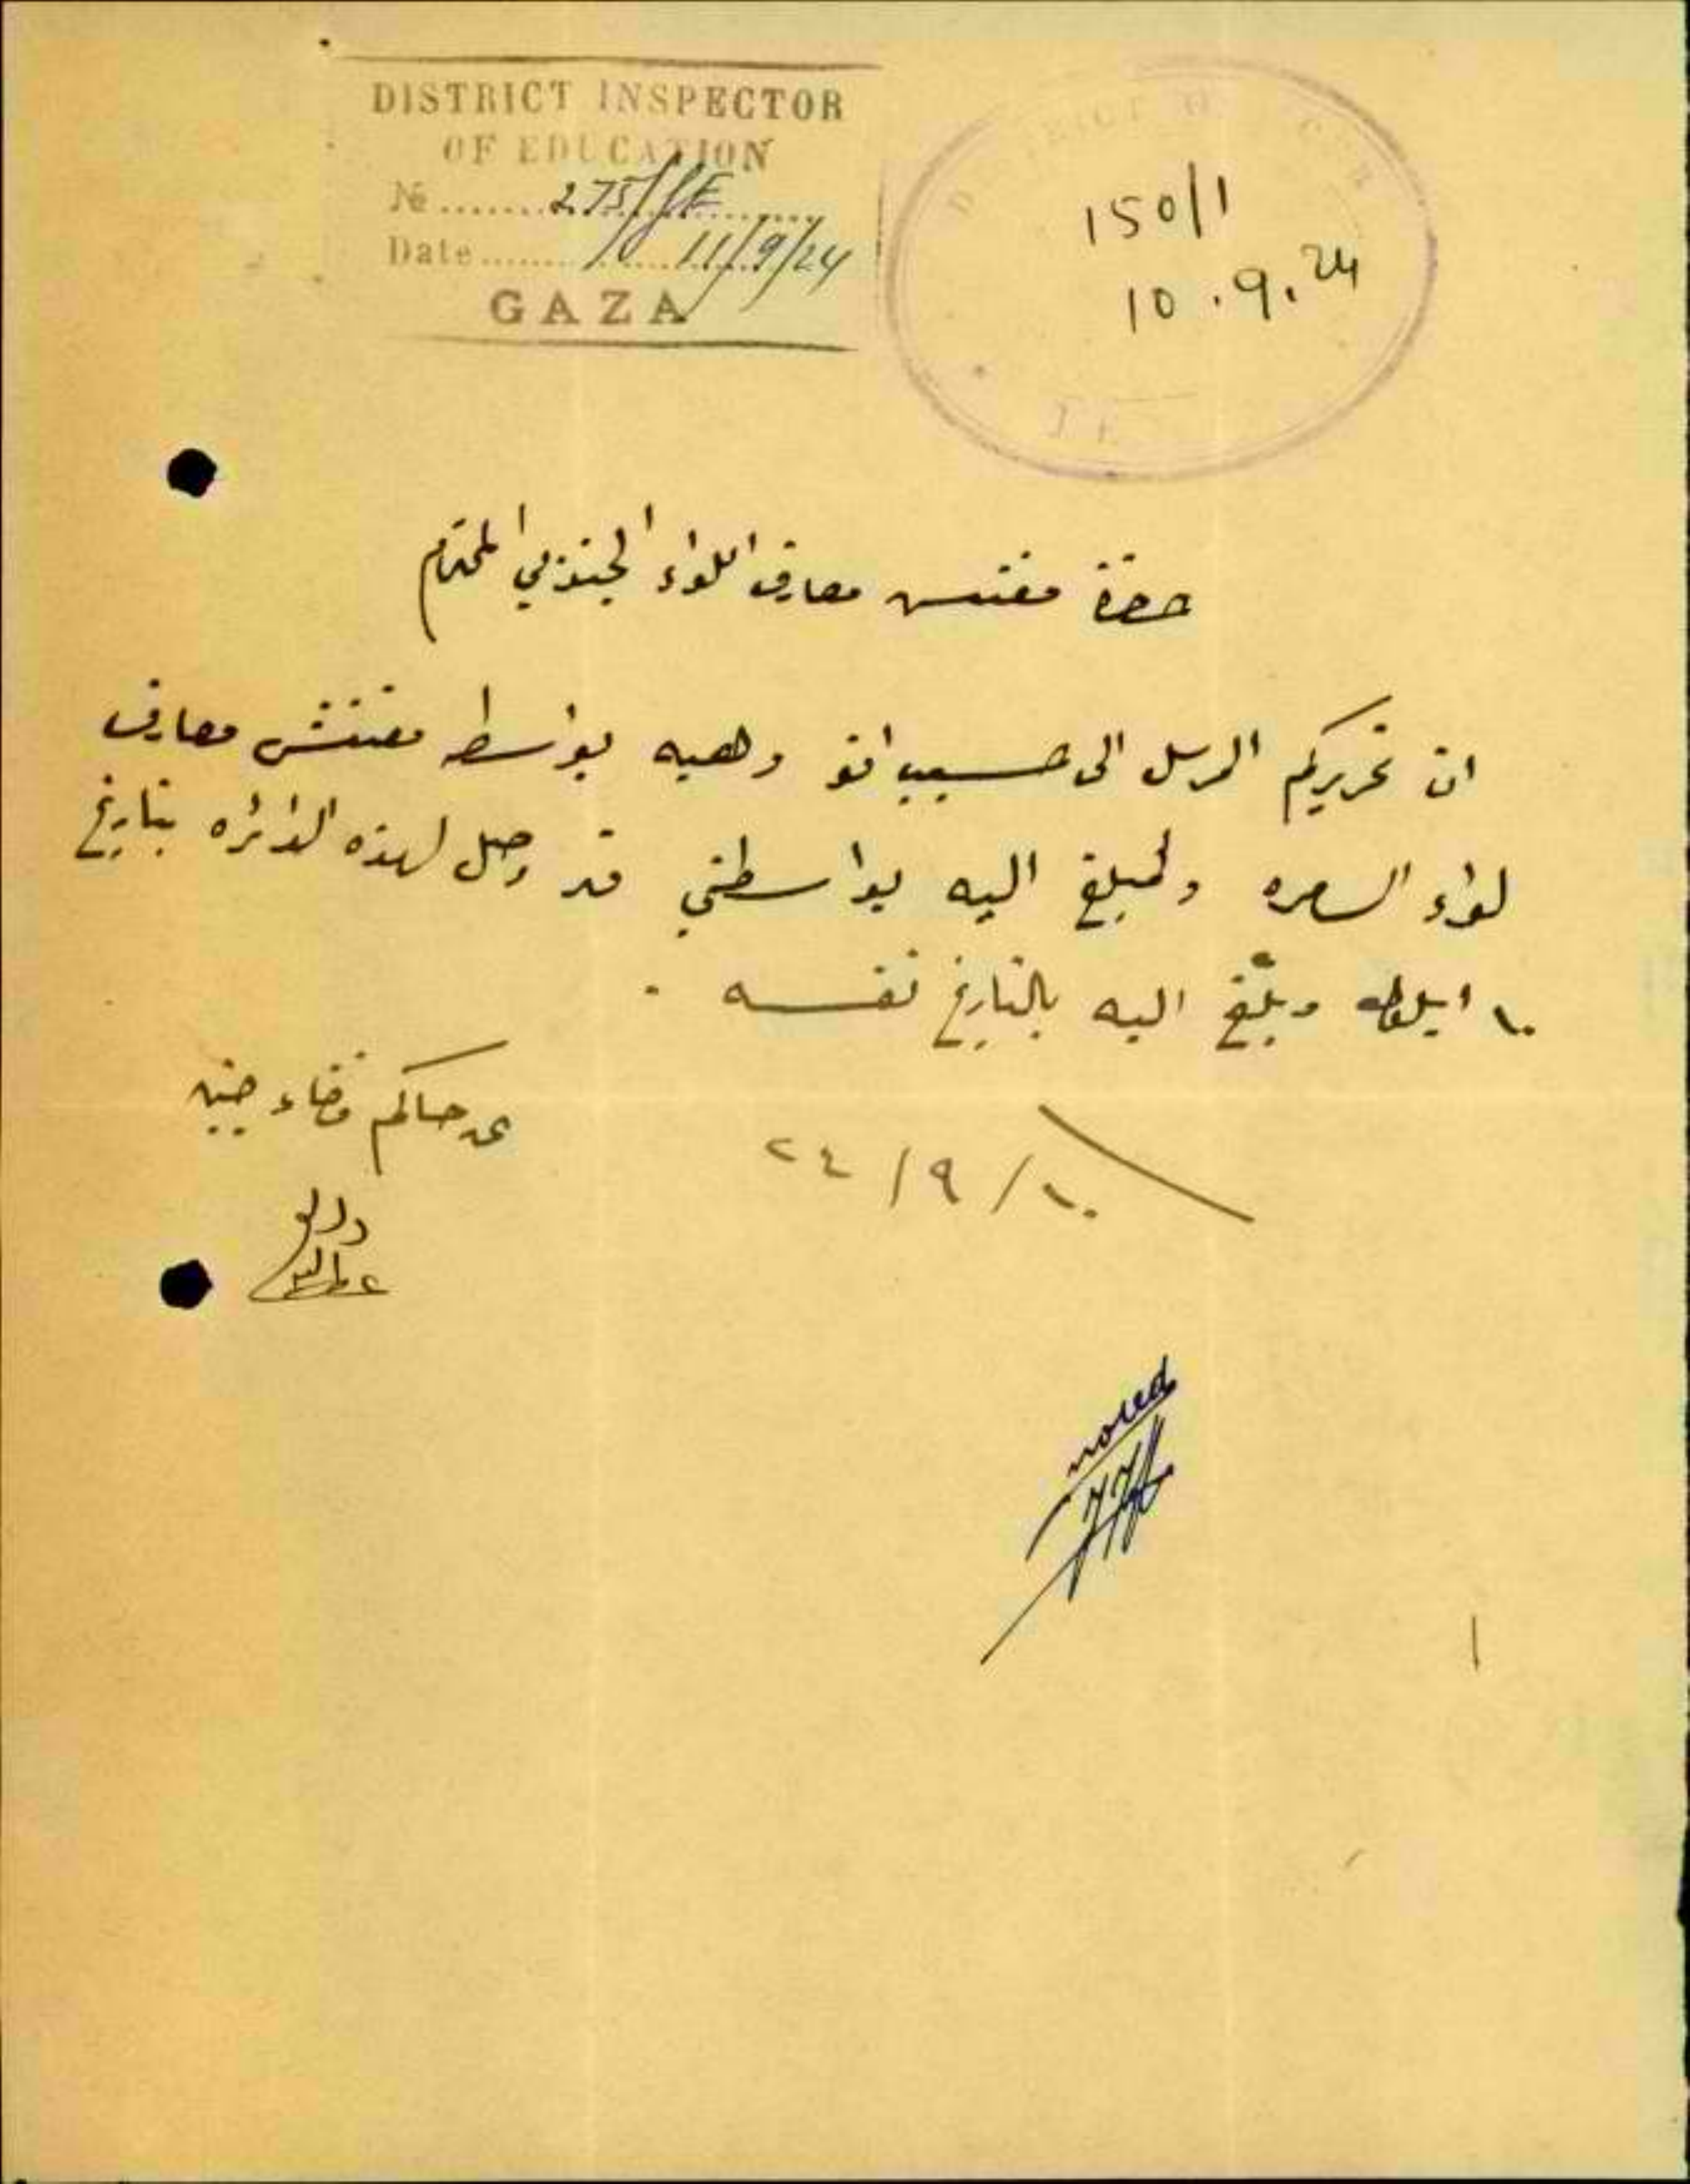 DISTRICT INSPECTOR
OF EDUCATION
№ 275/
Date 11/9/24
GAZA
150/1
10.9.24
حضرة مفتش معارف اللواء الجنوبي المحترم
ان تحريركم المرسل الى حسيب افـ وهبه بواسطة مفتش معارف
لواء السامره والمبلغ اليه بواسطتي قد وصل لهذه الدائره بتاريخ
١٠ ايلول وبلّغ اليه بالتاريخ نفسه .
عن حاكم قضاء جنين
١٠/٩/٢٤
noted